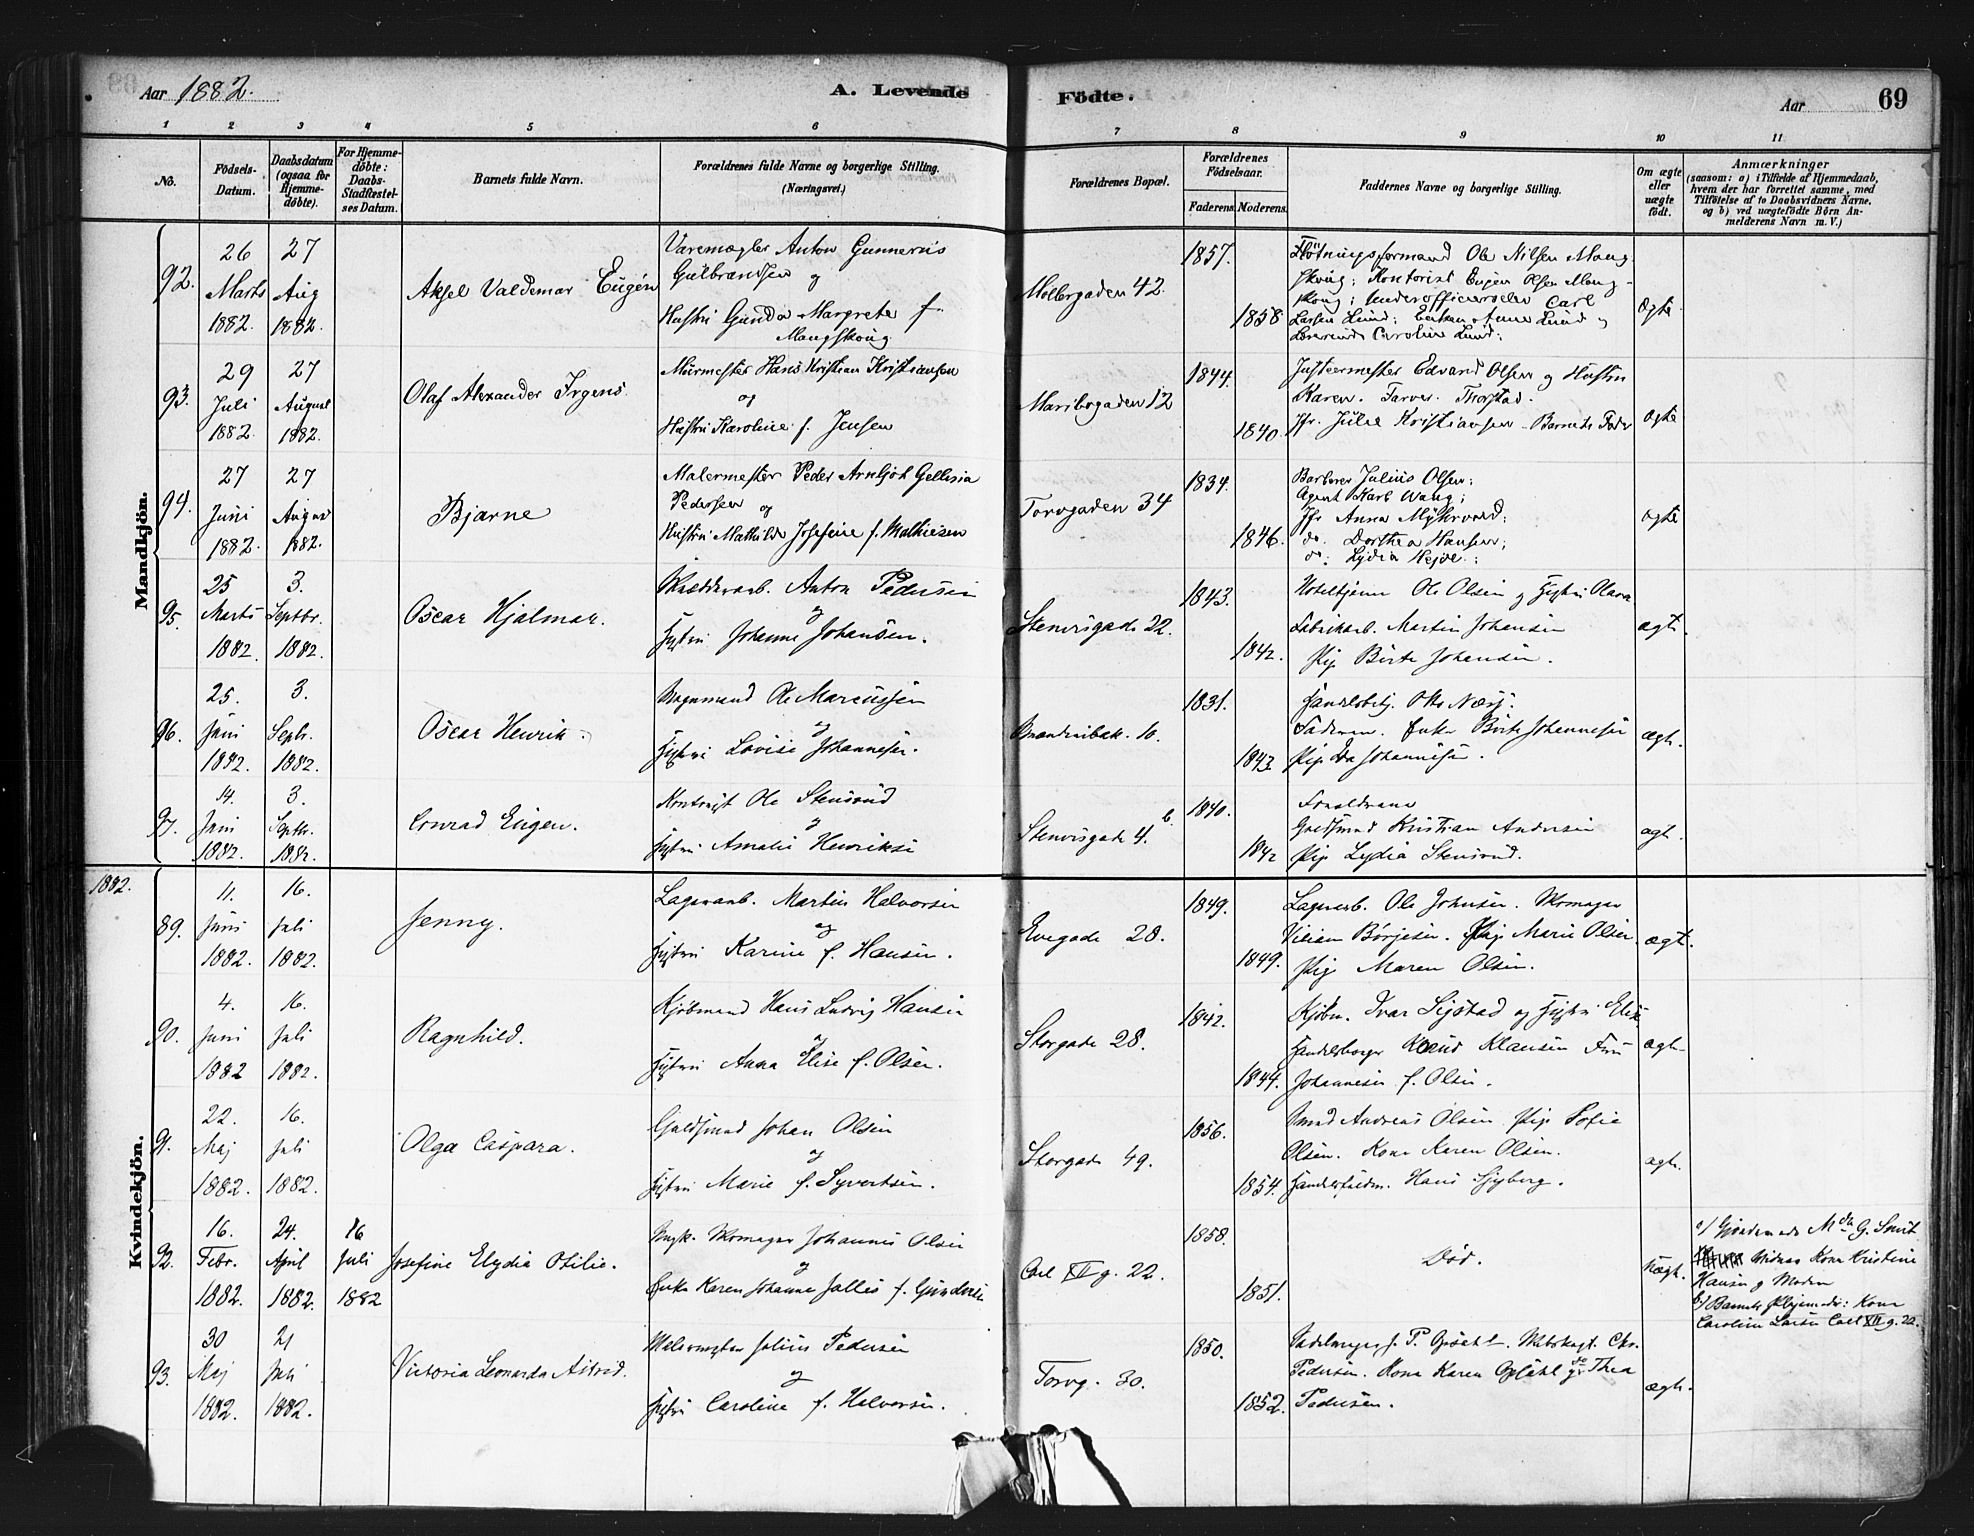 Aar 1882.
A. Levende Födte.
Aar
69
1 2 3 4 5 6 7 8 9 10 11
No.
Födsels-Datum.
Daabsdatum (ogsaa for Hjemmedöbte).
For Hjemmedöbte: Daabs-Stadfæstelses Datum.
Barnets fulde Navn.
Forældrenes fulde Navne og borgerlige Stilling. (Næringsvei.)
Forældrenes Bopæl.
Forældrenes Födselsaar.
Faderens. Moderens.
Faddernes Navne og borgerlige Stilling.
Om ægte eller uægte födt.
Anmærkninger
(saasom: a) i Tilfælde af Hjemmedaab, hvem der har forrettet samme, med Tilföielse af to Daabsvidners Navne, og b) ved uægtefödte Börn Anmelderens Navn m. V.)
Mandkjön.
92.
26 Marts 1882.
27 Aug 1882.
Aksel Valdemar Eugén
Varemægler Anton Gunnerius
Gulbrandsen og
Hustru Gunda Margrete f.
Mangskoug
Møllergaden 42.
1857.
1858
Flötningsformand Ole Nilsen Mang-
skoug; Kontorist Eugen Olsen Mang-
skoug; Underofficerselev Carl
Larsen Lund; Enken Anne Lund og
Lærerinde Caroline Lund;
Ægte
93.
29 Juli 1882.
27 August 1882.
Olaf Alexander Irgens.
Murmester Hans Kristian Kristiansen
og
Hustru Karoline f. Jensen
Maribogaden 12
1844.
1840.
Justermester Edvard Olsen og Hustru
Karen. Farver Thorstad.
Jfr. Julie Kristiansen. Barnets Fader
Ægte
94.
27 Juni 1882.
27 August 1882.
Bjarne
Malermester Peder Arnljot Gellisia
Pedersen og
Hustru Mathilde Josefine f. Mathiesen
Torvgaden 34
1834.
1846.
Barberer Julius Olsen;
Agent Karl Wang;
Jfr Anna Myhrvold;
do. Dorthea Hansen;
do. Lydia Hejde.;
Ægte
95.
25 Marts 1882.
3. Septbr. 1882.
Oscar Hjalmar.
Anton Pedersen
og
Hustru Johanne Johansen.
Stenersgade 22.
1843.
1842.
Ole Olsen og Hustru Olava
Fabrikarb. Martin Johansen
Pige Birte Johansen.
ægt.
96.
25. Juni 1882.
3. Septr. 1882.
Oscar Henrik.
Bognmand Ole Marcussen
og
Hustru Lovise Johannesen.
10.
1831.
1843
Handelsbetj. Otto Næss.
Enke Birte Johannesen
Pige Ida Johannesen.
ægt.
97.
14. Juni 1882.
3. Septbr. 1882.
Conrad Eugen.
Kontorist Ole Stensrud
og
Hustru Amalie Henrikse
Stenersgade 4. b.
1840.
1842
Forældrene
Guldsmed Kristian Andersen
Pige Lydia Stensrud.
ægt.
1882.
Kvindekjön.
89.
11. Juni 1882.
16. Juli 1882.
Jenny.
Lagerarb. Martin Halvorsen
og
Hustru Karine f. Hansen.
Enegade 28.
1849.
1849.
Lagerarb. Ole Johnsen. Skomager
Vilian Börjesen. Pige Marie Olsen.
Pige Maren Olsen.
ægt.
90.
4. Juni 1882
16. Juli 1882.
Ragnhild.
Kjöbmand Hans Ludvig Hansen
og
Hustru Anna Elise f. Olsen.
Storgade 28.
1842.
1844.
Kjöbm. Ivar Sigstad og Hustru Elise
Handelsborger Knud Klausen Fru
Johannesen f. Olsen.
ægt.
91.
22. Maj 1882.
16. Juli 1882.
Olga Caspara.
Guldsmed Johan Olsen
og
Hustru Marie f. Syvertsen.
Storgade 49.
1856.
1854.
Smed Andreas Olsen Pige Sofie
Olsen. Kone Karen Olsen.
Handelsfuldm. Hans Sjyberg.
ægt.
92.
16. Febr. 1882.
24. April 1882.
16 Juli 1882
Josefine Elydia Otilie.
Ungk. Skomager Johannes Olsen
og
Enke Karen Johanne f. Gundersen
Carl XII g. 22.
1858.
1851.
Död.
Uægt.
a/ Gjordemode Mda G. Smit
Kone Kristine
Hansen og Moder
b/ Barnets Plejemoder: Kone
Caroline Larsen Carl XII g. 22.
93.
30 Maj 1882.
21 Juli 1882.
Victoria Leonarda Astrid.
Malermester Julius Pedersen
og
Hustru Caroline f. Halvorsen.
Torvg. 30.
1850.
1852.
Sadelmager J. P. Opsahl. Chr.
Pedersen. Kone Karen Opsahl og do Thea
Pedersen.
ægt.